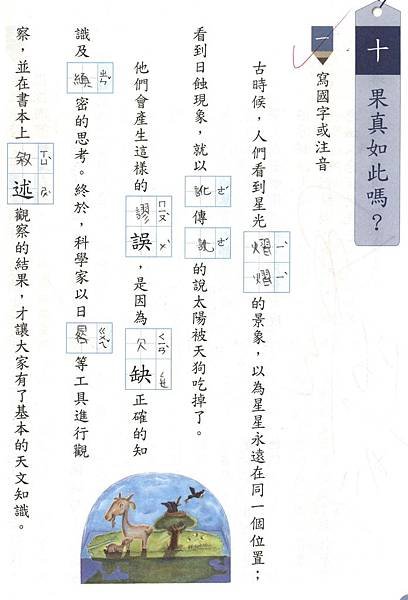 十 果真如此嗎？
一 寫國字或注音
古時候，人們看到星光熠ㄧˋ熠ㄧˋ的景象，以為星星永遠在同一個位置；
看到日蝕現象，就以訛ㄜˊ傳訛ㄜˊ的說太陽被天狗吃掉了。
他們會產生這樣的謬ㄇㄧㄡˋ誤ㄨˋ，是因為欠ㄑㄧㄢˋ缺ㄑㄩㄝ正確的知
識及縝ㄓㄣˇ密的思考。終於，科學家以日晷ㄍㄨㄟˇ等工具進行觀
察，並在書本上敘ㄒㄩˋ述ㄕㄨˋ觀察的結果，才讓大家有了基本的天文知識。